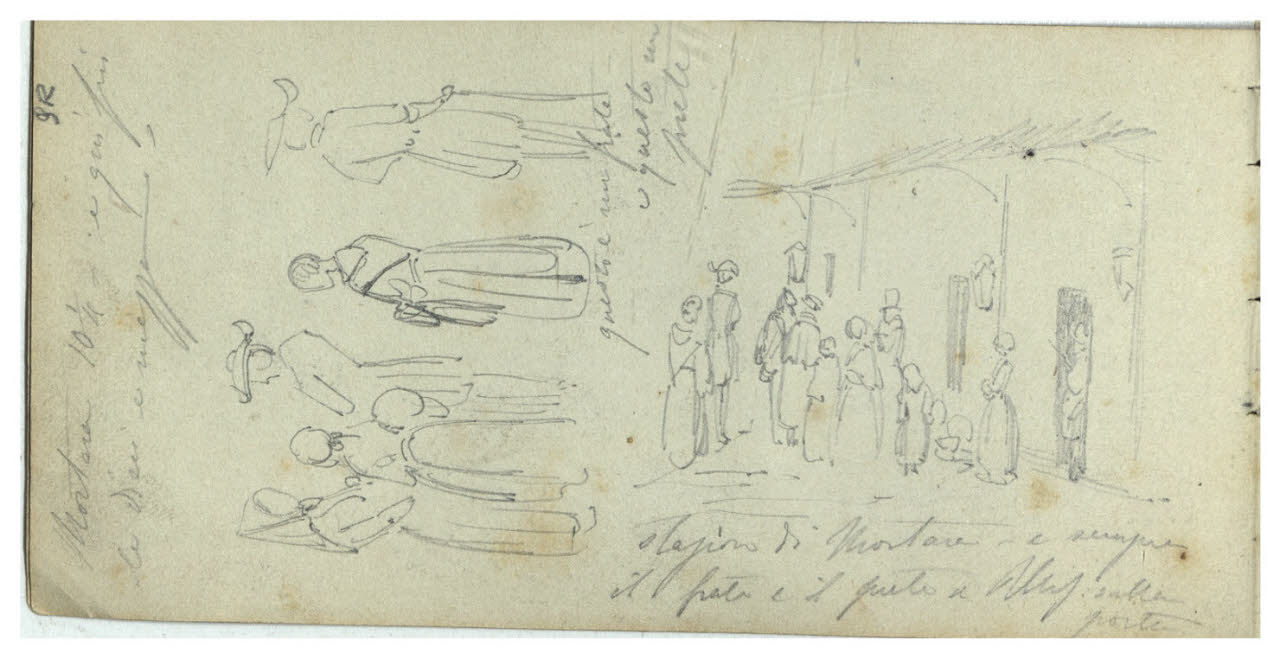 Mortara 10¼ e qui più
le dieci e mezza
questo è un frate
e questo un
prete
stazione di Mortara – e sempre
il frate e il prete e sulla
porta